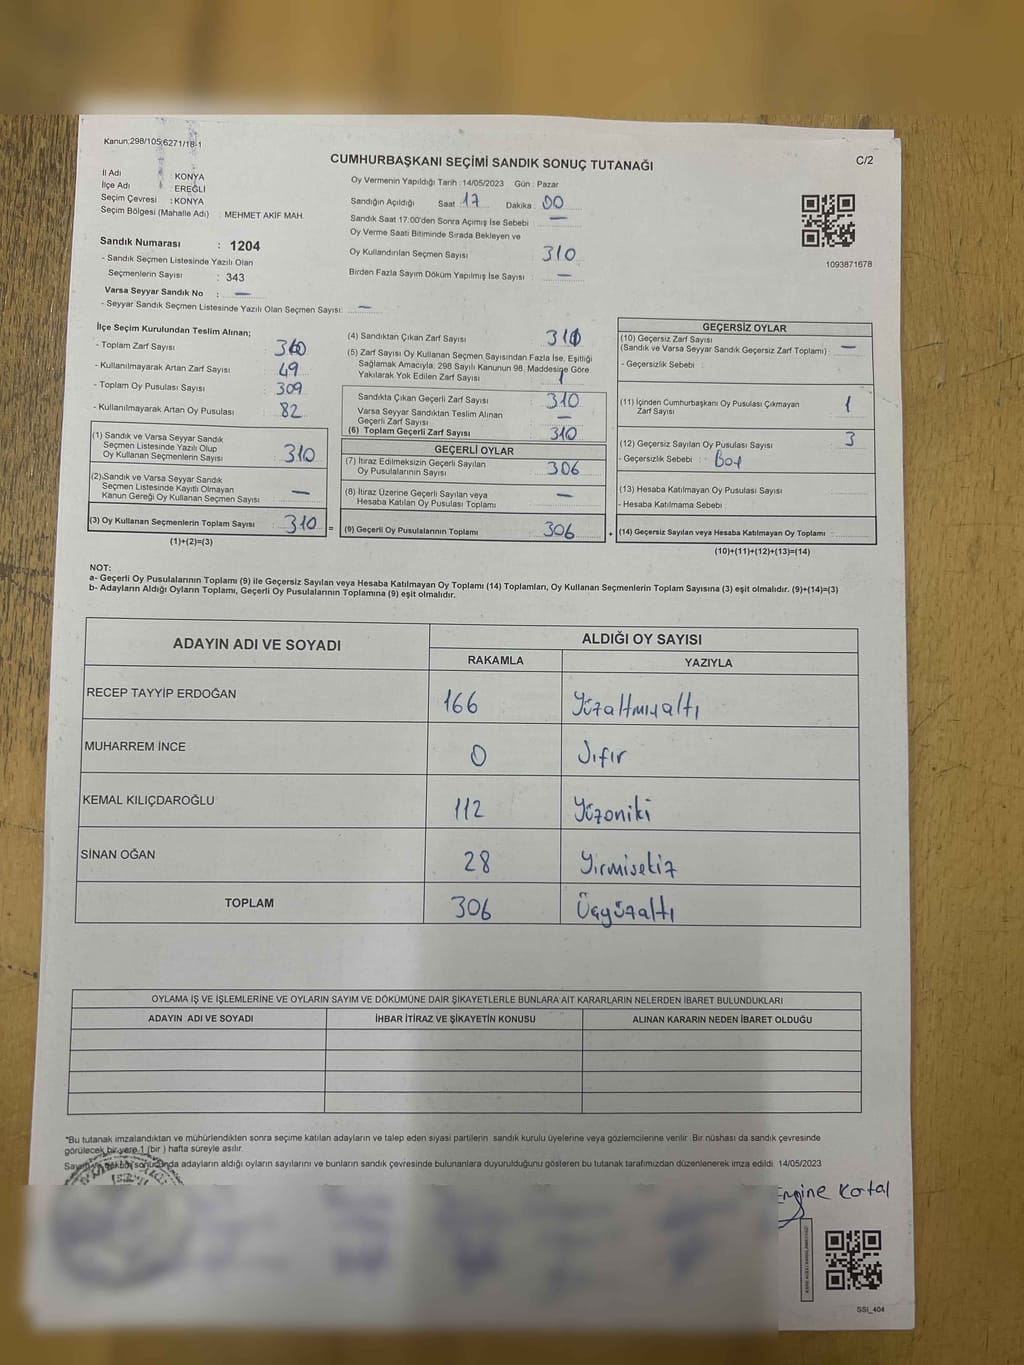 Kanun;298/105;6271/18-1
CUMHURBAŞKANI SEÇİMİ SANDIK SONUÇ TUTANAĞI
C/2
İl Adı : KONYA
İlçe Adı : EREĞLİ
Seçim Çevresi : KONYA
Seçim Bölgesi (Mahalle Adı) : MEHMET AKİF MAH.
Sandık Numarası : 1204
- Sandık Seçmen Listesinde Yazılı Olan
Seçmenlerin Sayısı : 343
Varsa Seyyar Sandık No : —
- Seyyar Sandık Seçmen Listesinde Yazılı Olan Seçmen Sayısı: —
Oy Vermenin Yapıldığı Tarih : 14/05/2023 Gün : Pazar
Sandığın Açıldığı Saat 17 Dakika : 00
Sandık Saat 17:00'den Sonra Açılmış İse Sebebi : —
Oy Verme Saati Bitiminde Sırada Bekleyen ve
Oy Kullandırılan Seçmen Sayısı 310
Birden Fazla Sayım Döküm Yapılmış İse Sayısı : —
1093871678
İlçe Seçim Kurulundan Teslim Alınan;
- Toplam Zarf Sayısı
- Kullanılmayarak Artan Zarf Sayısı 49
- Toplam Oy Pusulası Sayısı 309
- Kullanılmayarak Artan Oy Pusulası 82
(1) Sandık ve Varsa Seyyar Sandık
Seçmen Listesinde Yazılı Olup
Oy Kullanan Seçmenlerin Sayısı 310
(2)Sandık ve Varsa Seyyar Sandık
Seçmen Listesinde Kayıtlı Olmayan
Kanun Gereği Oy Kullanan Seçmen Sayısı —
(3) Oy Kullanan Seçmenlerin Toplam Sayısı 310 =
(1)+(2)=(3)
(4) Sandıktan Çıkan Zarf Sayısı 310
(5) Zarf Sayısı Oy Kullanan Seçmen Sayısından Fazla İse, Eşitliği
Sağlamak Amacıyla; 298 Sayılı Kanunun 98. Maddesine Göre
Yakılarak Yok Edilen Zarf Sayısı
Sandıkta Çıkan Geçerli Zarf Sayısı 310
Varsa Seyyar Sandıktan Teslim Alınan
Geçerli Zarf Sayısı —
(6) Toplam Geçerli Zarf Sayısı 310
GEÇERLİ OYLAR
(7) İtiraz Edilmeksizin Geçerli Sayılan
Oy Pusulalarının Sayısı 306
(8) İtiraz Üzerine Geçerli Sayılan veya
Hesaba Katılan Oy Pusulası Toplamı —
(9) Geçerli Oy Pusulalarının Toplamı 306 +
GEÇERSİZ OYLAR
(10) Geçersiz Zarf Sayısı
(Sandık ve Varsa Seyyar Sandık Geçersiz Zarf Toplamı) : —
- Geçersizlik Sebebi :
(11) İçinden Cumhurbaşkanı Oy Pusulası Çıkmayan
Zarf Sayısı 1
(12) Geçersiz Sayılan Oy Pusulası Sayısı 3
- Geçersizlik Sebebi :
(13) Hesaba Katılmayan Oy Pusulası Sayısı
- Hesaba Katılmama Sebebi :
(14) Geçersiz Sayılan veya Hesaba Katılmayan Oy Toplamı :
(10)+(11)+(12)+(13)=(14)
NOT:
a- Geçerli Oy Pusulalarının Toplamı (9) ile Geçersiz Sayılan veya Hesaba Katılmayan Oy Toplamı (14) Toplamları, Oy Kullanan Seçmenlerin Toplam Sayısına (3) eşit olmalıdır. (9)+(14)=(3)
b- Adayların Aldığı Oyların Toplamı, Geçerli Oy Pusulalarının Toplamına (9) eşit olmalıdır.
ADAYIN ADI VE SOYADI ALDIĞI OY SAYISI
RAKAMLA YAZIYLA
RECEP TAYYİP ERDOĞAN 166 Yüzaltmışaltı
MUHARREM İNCE 0 Sıfır
KEMAL KILIÇDAROĞLU 112 Yüzoniki
SİNAN OĞAN 28 Yirmisekiz
TOPLAM 306 Üçyüzaltı
OYLAMA İŞ VE İŞLEMLERİNE VE OYLARIN SAYIM VE DÖKÜMÜNE DAİR ŞİKAYETLERLE BUNLARA AİT KARARLARIN NELERDEN İBARET BULUNDUKLARI
ADAYIN ADI VE SOYADI İHBAR İTİRAZ VE ŞİKAYETİN KONUSU ALINAN KARARIN NEDEN İBARET OLDUĞU
*Bu tutanak imzalandıktan ve mühürlendikten sonra seçime katılan adayların ve talep eden siyasi partilerin sandık kurulu üyelerine veya gözlemcilerine verilir. Bir nüshası da sandık çevresinde
görülecek bir yere 1 (bir ) hafta süreyle asılır.
Sayım ve döküm sonucunda adayların aldığı oyların sayılarını ve bunların sandık çevresinde bulunanlara duyurulduğunu gösteren bu tutanak tarafımızdan düzenlenerek imza edildi. 14/05/2023
SSI_404